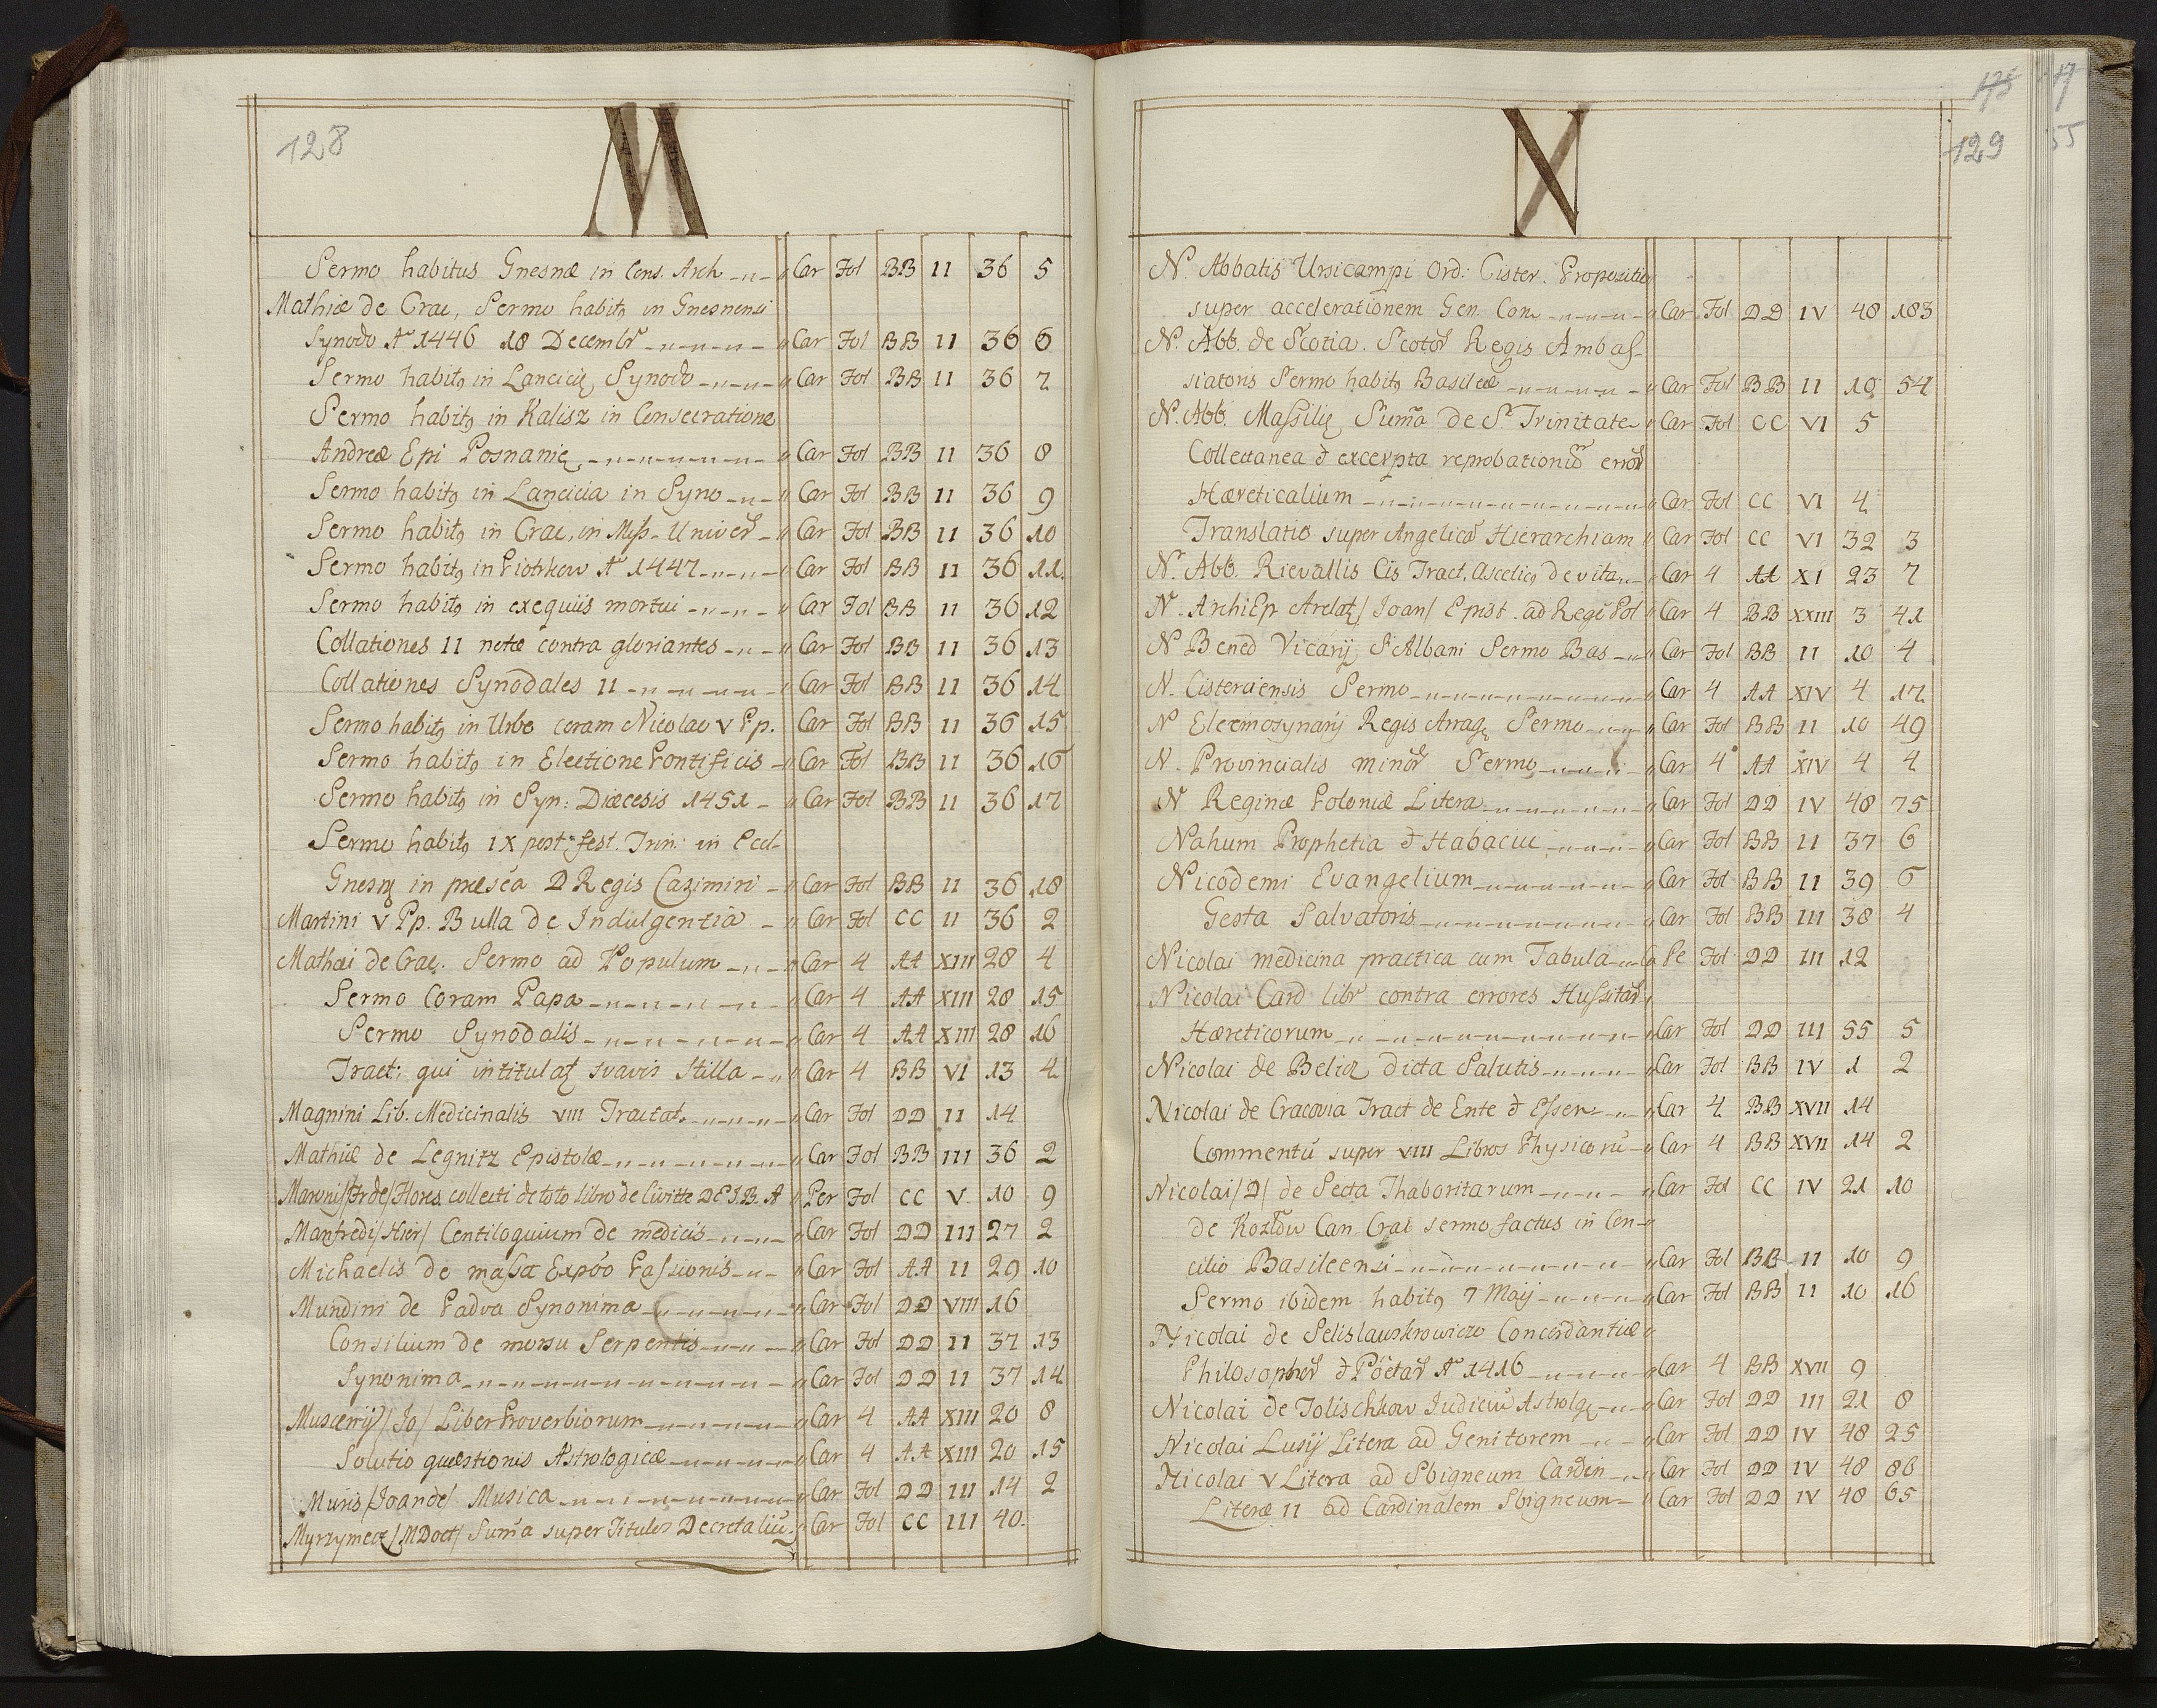 128
M
Sermo habitus Gnesnæ in Cons. Arch Car Fol BB II 36 5
Mathiæ de Crac, Sermo habitꝯ in Gnesnensi
Synodo Aº 1446 18 Decembr Car Fol BB II 36 6
Sermo habitꝯ in Lancicię Synodo Car Fol BB II 36 7
Sermo habitꝯ in Kalisz in Consecratione
Andreæ Epi Posnanię Car Fol BB II 36 8
Sermo habitꝯ in Lancicia in Syno Car Fol BB II 36 9
Sermo habitꝯ in Crac, in Miss. Univer Car Fol BB II 36 10
Sermo habitꝯ in Piotrkow Aº 1447 Car Fol BB II 36 11.
Sermo habitꝯ in exequiis mortui Car Fol BB II 36 12
Collationes II notæ contra gloriantes Car Fol BB II 36 13
Collationes Synodales II Car Fol BB II 36 14
Sermo habitꝯ in Urbe coram Nicolao V Pp. Car Fol BB II 36 15
Sermo habitꝯ in Electione Pontificis Car Fol BB II 36 16
Sermo habitꝯ in Syn: Diæcesis 1451 Car Fol BB II 36 17
Sermo habitꝯ IX post fest. Trin: in Eccl
Gnesnę in præsēa D Regis Cazimiri Car Fol BB II 36 18
Martini V Pp. Bulla de Indulgentia Car Fol CC II 36 2
Mathæi de Crac. Sermo ad Populum Car 4 AA XIII 28 4
Sermo Coram Papa Car 4 AA XIII 28 15
Sermo Synodalis Car 4 AA XIII 28 16
Tract: qui intitulat suavis Stilla Car 4 BB VI 13 4
Magnini Lib. Medicinalis VIII Tractat. Car Fol DD II 14
Mathiæ de Legnitz Epistolæ Car Fol BB III 36 2
Maronis/Fr de/ Flores collecti de toto libro de Civitte DEI B. A Per Fol CC V 10 9
Manfredi/Hier/ Centiloquium de medicis Car Fol DD III 27 2
Michaelis de massa Expõo Passionis Car Fol AA II 29 10
Mundini de Padva Synonima Car Fol DD VIII 16
Consilium de morsu Serpentis Car Fol DD II 37 13
Synonima Car Fol DD II 37 14
Muscenij/Jo/ Liber Proverbiorum Car 4 AA XIII 20 8
Solutio quæstionis Astrologicæ Car 4 AA XIII 20 15
Muris/Joan de/ Musica Car Fol DD III 14 2
Myrzymecz/MDoct/ Suma super Titulos Decretaliū Car Fol CC III 40.
175
129
N
N. Abbatis Ursicampi Ord: Cister. Propozitio
super accelerationem Gen. Con Car Fol DD IV 48 183
N. Abb. de Scotia. Scotor Regis Ambas-
siatoris Sermo habitꝯ Basileæ Car Fol BB II 10 54
N. Abb. Massilię Suma de S Trinitate Car Fol CC VI 5
Collectanea & excerpta reprobationū error
Hæreticalium Car Fol CC VI 4
Translatio super Angelicā Hierarchiam Car Fol CC VI 32 3
N. Abb. Rievallis Cis Tract. asceticꝯ de vita Car 4 AA XI 23 7
N. ArchiEp Arelat/Joan/ Epist. ad Regē Pol Car 4 BB XXIII 3 41
N Bened Vicarij S Albani Sermo Bas Car Fol BB II 10 4
N. Cisterciensis Sermo Car 4 AA XIV 4 17
N Eleemosynarij Regis Arrag Sermo Car Fol BB II 10 49
N. Provincialis minor Sermo Car 4 AA XIV 4 4
N Reginæ Poloniæ Litera Car Fol DD IV 48 75
Nahum Prophetia & Habacuc Car Fol BB II 37 6
Nicodemi Evangelium Car Fol BB II 39 6
Gesta Salvatoris Car Fol BB III 38 4
Nicolai medicina practica cum Tabula Ca Pe Fol DD III 12
Nicolai Card libr contra errores Hussitar
Hæreticorum Car Fol DD III 55 5
Nicolai de Belicz dicta Salutis Car Fol BB IV 1 2
Nicolai de Cracovia Tract de Ente & Essen Car 4 BB XVII 14
Commentū super VIII Libros Physicorū Car 4 BB XVII 14 2
Nicolai/D/ de Secta Thaboritarum Car Fol CC IV 21 10
de Kozłow Can Crac sermo factus in Con-
cilio Basileensi Car Fol BB II 10 9
Sermo ibidem habitꝯ 7 Maij Car Fol BB II 10 16
Nicolai de Selislawskowicze Concordantiæ
Philosophor & Pöetar Aº 1416 Car 4 BB XVII 9
Nicolai de Tolischkow Judiciū Astrolg Car Fol DD III 21 8
Nicolai Lusij Litera ad Genitorem Car Fol DD IV 48 25
Nicolai V Litera ad Sbigneum Cardin Car Fol DD IV 48 86
Literæ II ad Cardinalem Sbigneum Car Fol DD IV 48 65